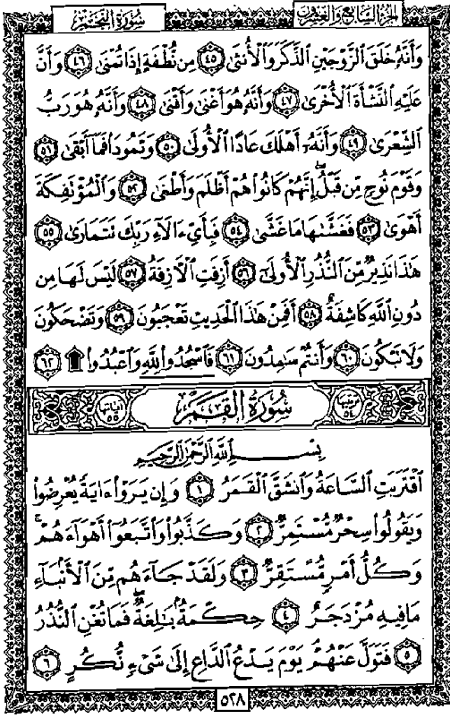 الجزء السابع والعشرون
سُورَةُ النَّجْمِ
وَأَنَّهُۥ خَلَقَ ٱلزَّوْجَيْنِ ٱلذَّكَرَ وَٱلْأُنثَىٰ ٤٥ مِن نُّطْفَةٍ إِذَا تُمْنَىٰ ٤٦ وَأَنَّ
عَلَيْهِ ٱلنَّشْأَةَ ٱلْأُخْرَىٰ ٤٧ وَأَنَّهُۥ هُوَ أَغْنَىٰ وَأَقْنَىٰ ٤٨ وَأَنَّهُۥ هُوَ رَبُّ
ٱلشِّعْرَىٰ ٤٩ وَأَنَّهُۥٓ أَهْلَكَ عَادًا ٱلْأُولَىٰ ٥٠ وَثَمُودَا۟ فَمَآ أَبْقَىٰ ٥١
وَقَوْمَ نُوحٍ مِّن قَبْلُ ۖ إِنَّهُمْ كَانُوا۟ هُمْ أَظْلَمَ وَأَطْغَىٰ ٥٢ وَٱلْمُؤْتَفِكَةَ
أَهْوَىٰ ٥٣ فَغَشَّىٰهَا مَا غَشَّىٰ ٥٤ فَبِأَىِّ ءَالَآءِ رَبِّكَ تَتَمَارَىٰ ٥٥
هَٰذَا نَذِيرٌ مِّنَ ٱلنُّذُرِ ٱلْأُولَىٰٓ ٥٦ أَزِفَتِ ٱلْآزِفَةُ ٥٧ لَيْسَ لَهَا مِن
دُونِ ٱللَّهِ كَاشِفَةٌ ٥٨ أَفَمِنْ هَٰذَا ٱلْحَدِيثِ تَعْجَبُونَ ٥٩ وَتَضْحَكُونَ
وَلَا تَبْكُونَ ٦٠ وَأَنتُمْ سَٰمِدُونَ ٦١ فَٱسْجُدُوا۟ لِلَّهِ وَٱعْبُدُوا۟ ۩ ٦٢
ترتيبها ٥٤ سُورَةُ الْقَمَرِ آياتها ٥٥
بِسْمِ ٱللَّهِ ٱلرَّحْمَٰنِ ٱلرَّحِيمِ
ٱقْتَرَبَتِ ٱلسَّاعَةُ وَٱنشَقَّ ٱلْقَمَرُ ١ وَإِن يَرَوْا۟ ءَايَةً يُعْرِضُوا۟
وَيَقُولُوا۟ سِحْرٌ مُّسْتَمِرٌّ ٢ وَكَذَّبُوا۟ وَٱتَّبَعُوٓا۟ أَهْوَآءَهُمْ ۚ
وَكُلُّ أَمْرٍ مُّسْتَقِرٌّ ٣ وَلَقَدْ جَآءَهُم مِّنَ ٱلْأَنۢبَآءِ
مَا فِيهِ مُزْدَجَرٌ ٤ حِكْمَةٌۢ بَٰلِغَةٌ ۖ فَمَا تُغْنِ ٱلنُّذُرُ
٥ فَتَوَلَّ عَنْهُمْ ۘ يَوْمَ يَدْعُ ٱلدَّاعِ إِلَىٰ شَىْءٍ نُّكُرٍ ٦
٥٢٨